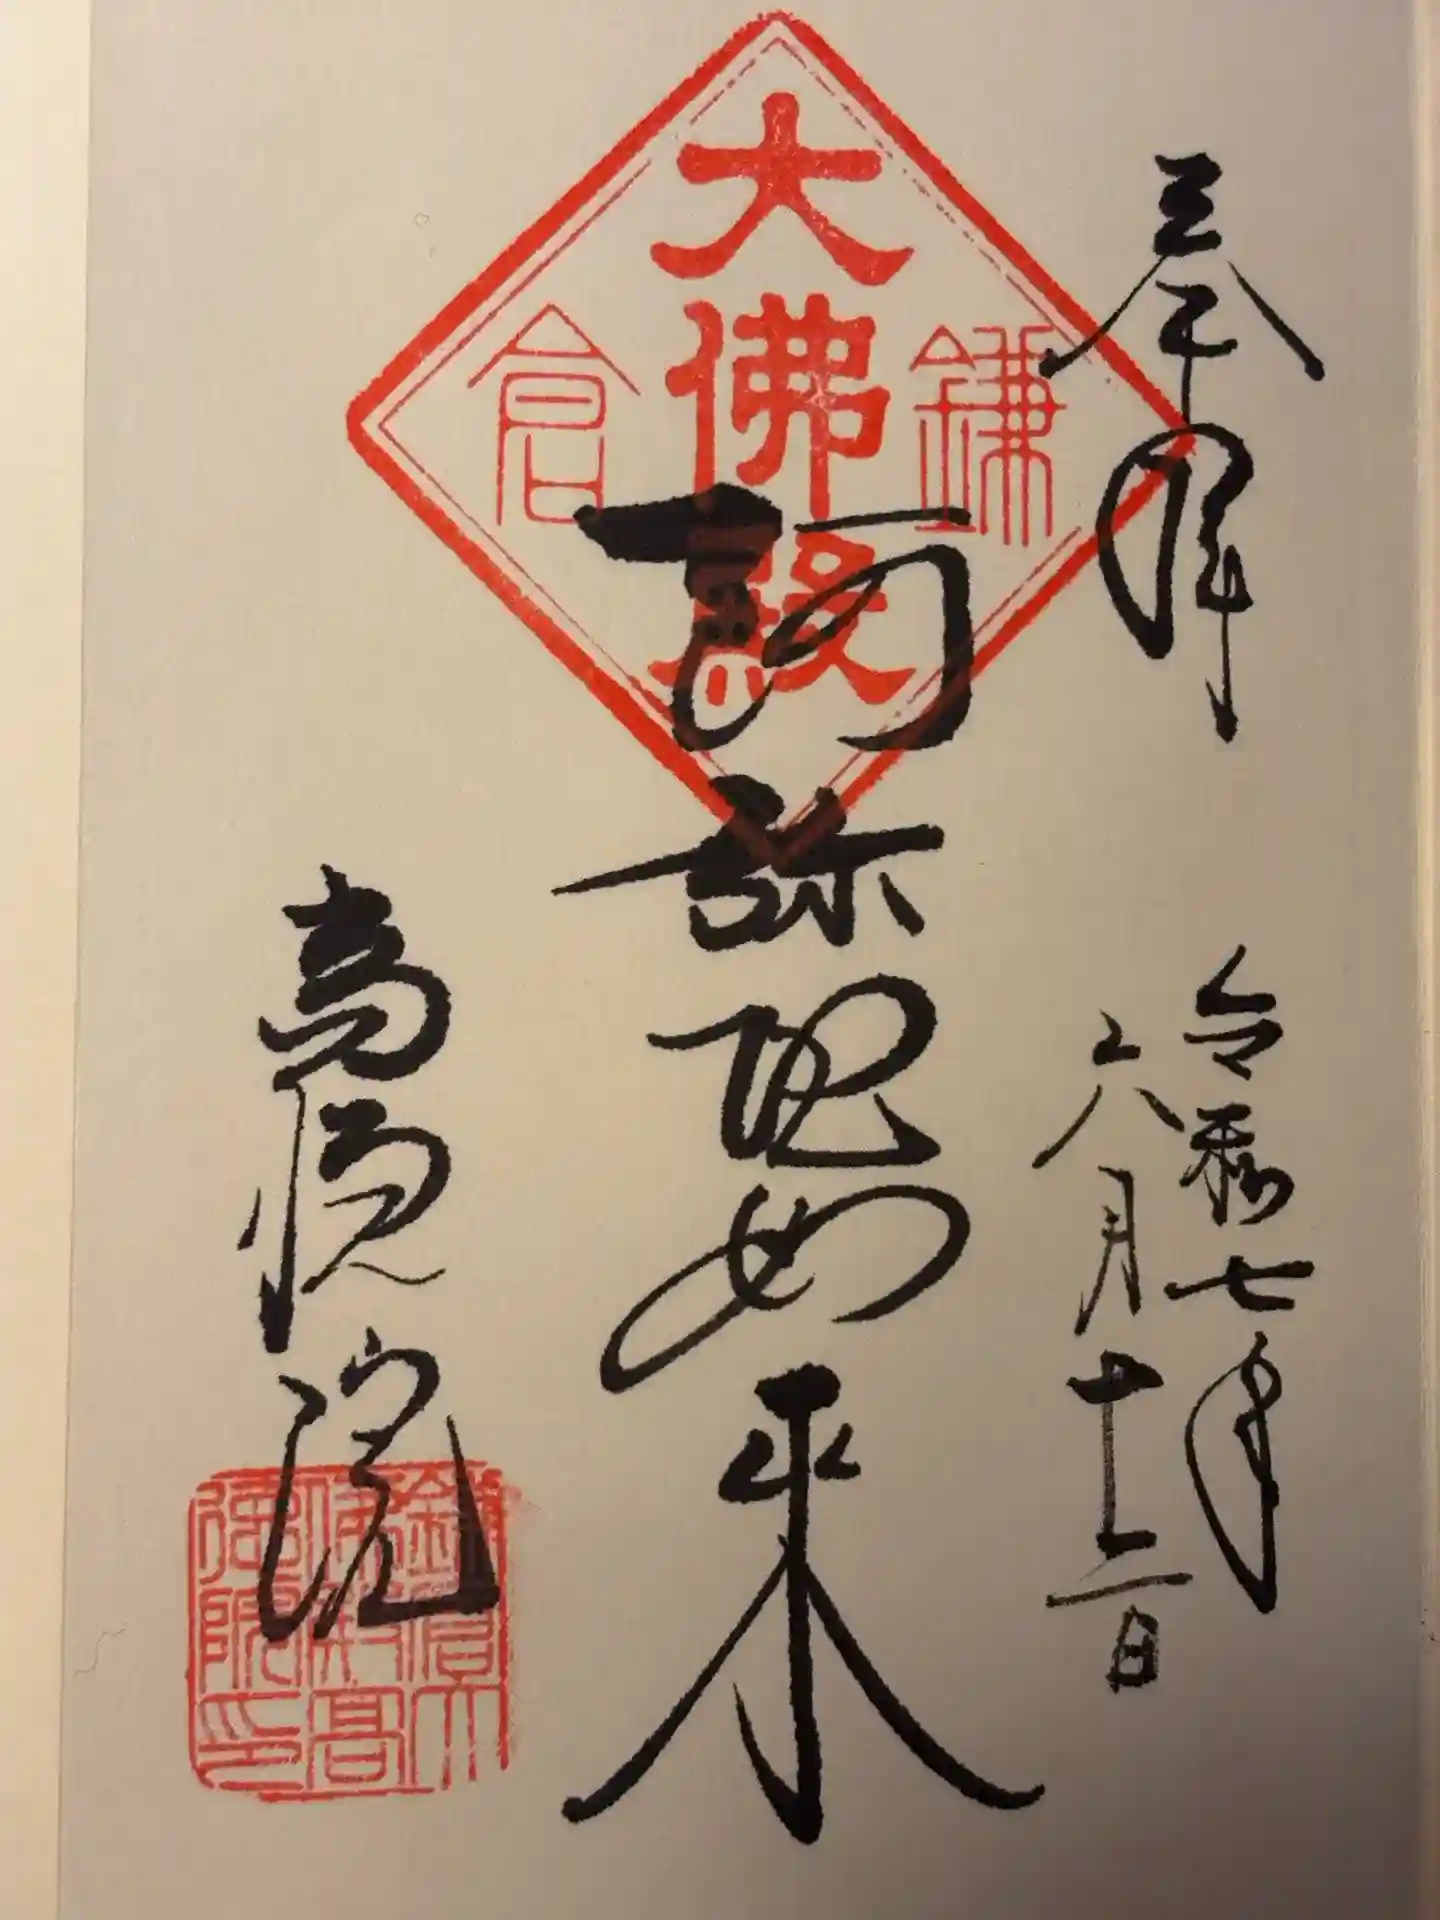 奉拝
令和七年
六月十二日
鎌倉
大佛殿
阿弥陀如来
高徳院
鎌倉大
佛殿高
徳院印